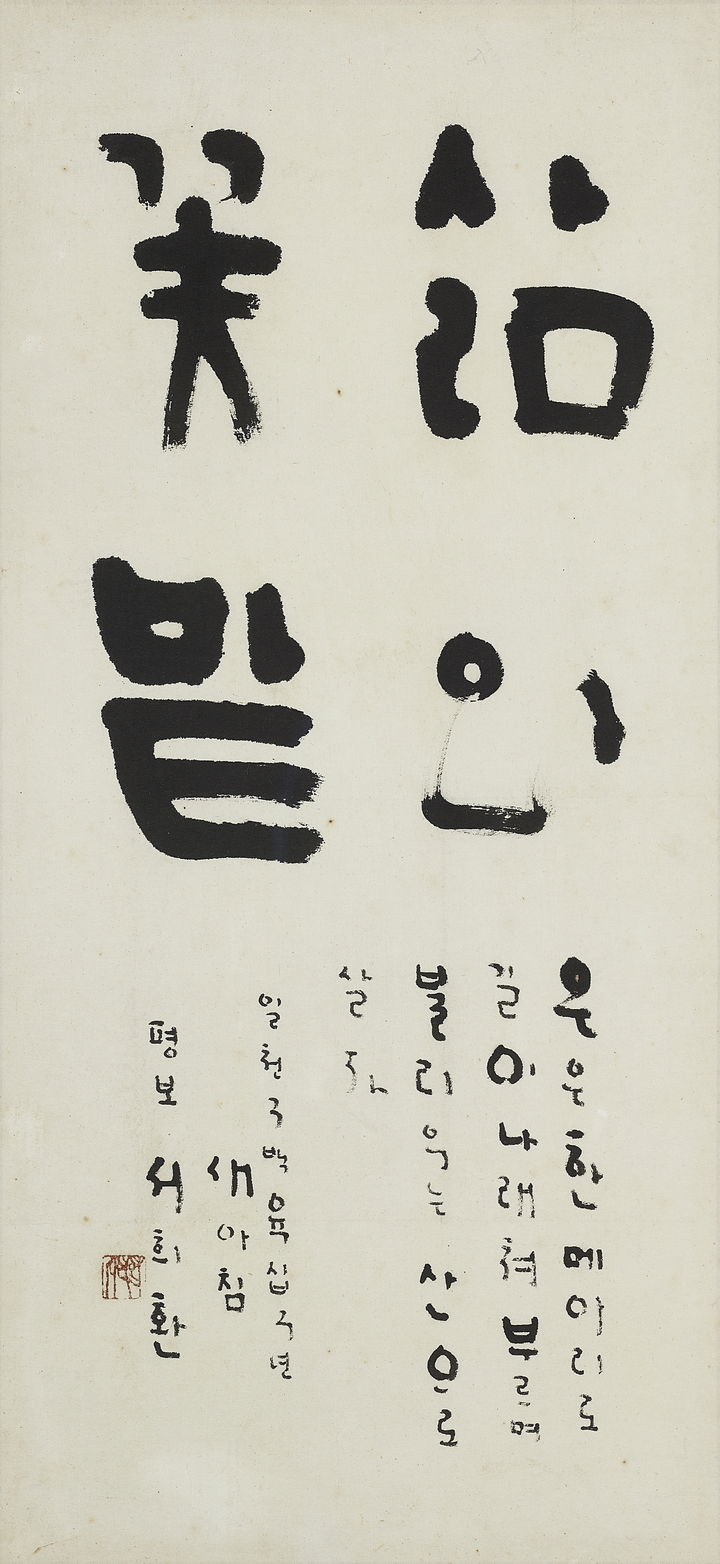 삶안
꽃밭
은은한 메아리로
길이 나래쳐 부르며
불리우는 산으로
살자
일천구백육십구년
새아침
평보 서희환